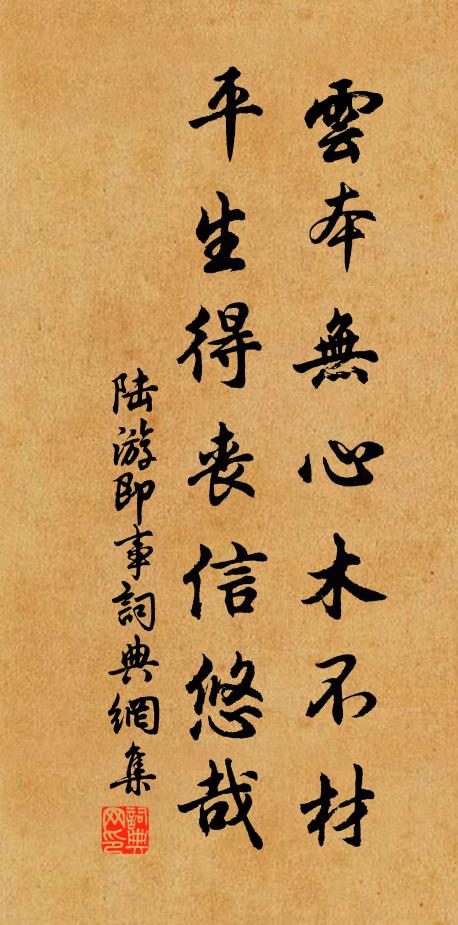 雲本無心木不材
平生得喪信悠哉
陸游即事詞典網集
詞典网印